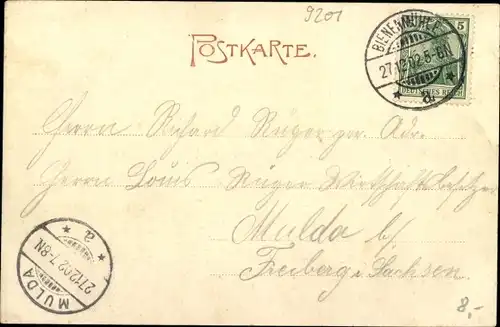 9201
POSTKARTE.
BIENENMÜHLE
27.12.02.5-6N.
* a. *
5
DEUTSCHES REICH
Herrn Richard Rüger zur. Adr.
Herrn Louis Rüger Wirtschaftsbesitzer
Mulda b/
Freiberg i. Sachsen
MULDA
27.12.02.7-8N.
* a *
8,-